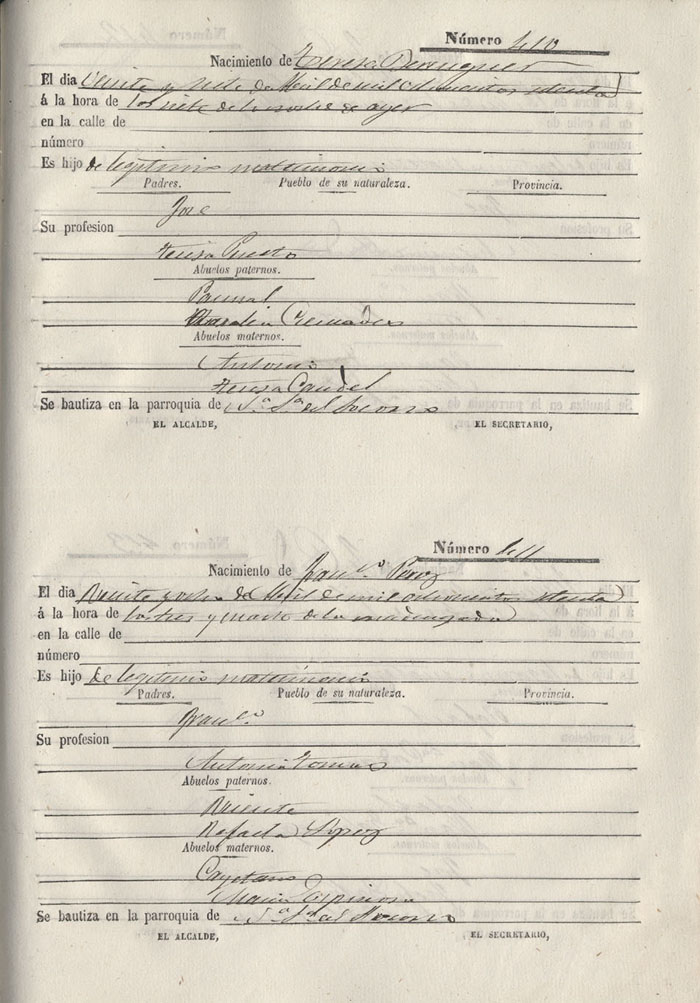 Número 410
Nacimiento de Teresa Berenguer
El dia Veinte y siete de Abril de mil ochocientos setenta
á la hora de las siete de la noche de ayer
en la calle de
número
Es hijo de legitimo matrimonio
Padres. Pueblo de su naturaleza. Provincia.
Jose
Su profesion
Teresa
Abuelos paternos.
Pascual
Cremades
Abuelos maternos.
Antonio
Teresa Candel
Se bautiza en la parroquia de N.ª S.ª del Socorro
EL ALCALDE, EL SECRETARIO,
Número 411
Nacimiento de Fran.co Perez
El dia Veinte y ocho de Abril de mil ochocientos setenta
á la hora de las tres y cuarto de la madrugada
en la calle de
número
Es hijo de legitimo matrimonio
Padres. Pueblo de su naturaleza. Provincia.
Fran.co
Su profesion
Antonia Tomas
Abuelos paternos.
Vicente
Rafaela Lopez
Abuelos maternos.
Cayetano
Maria Espinosa
Se bautiza en la parroquia de N.ª S.ª del Socorro
EL ALCALDE, EL SECRETARIO,